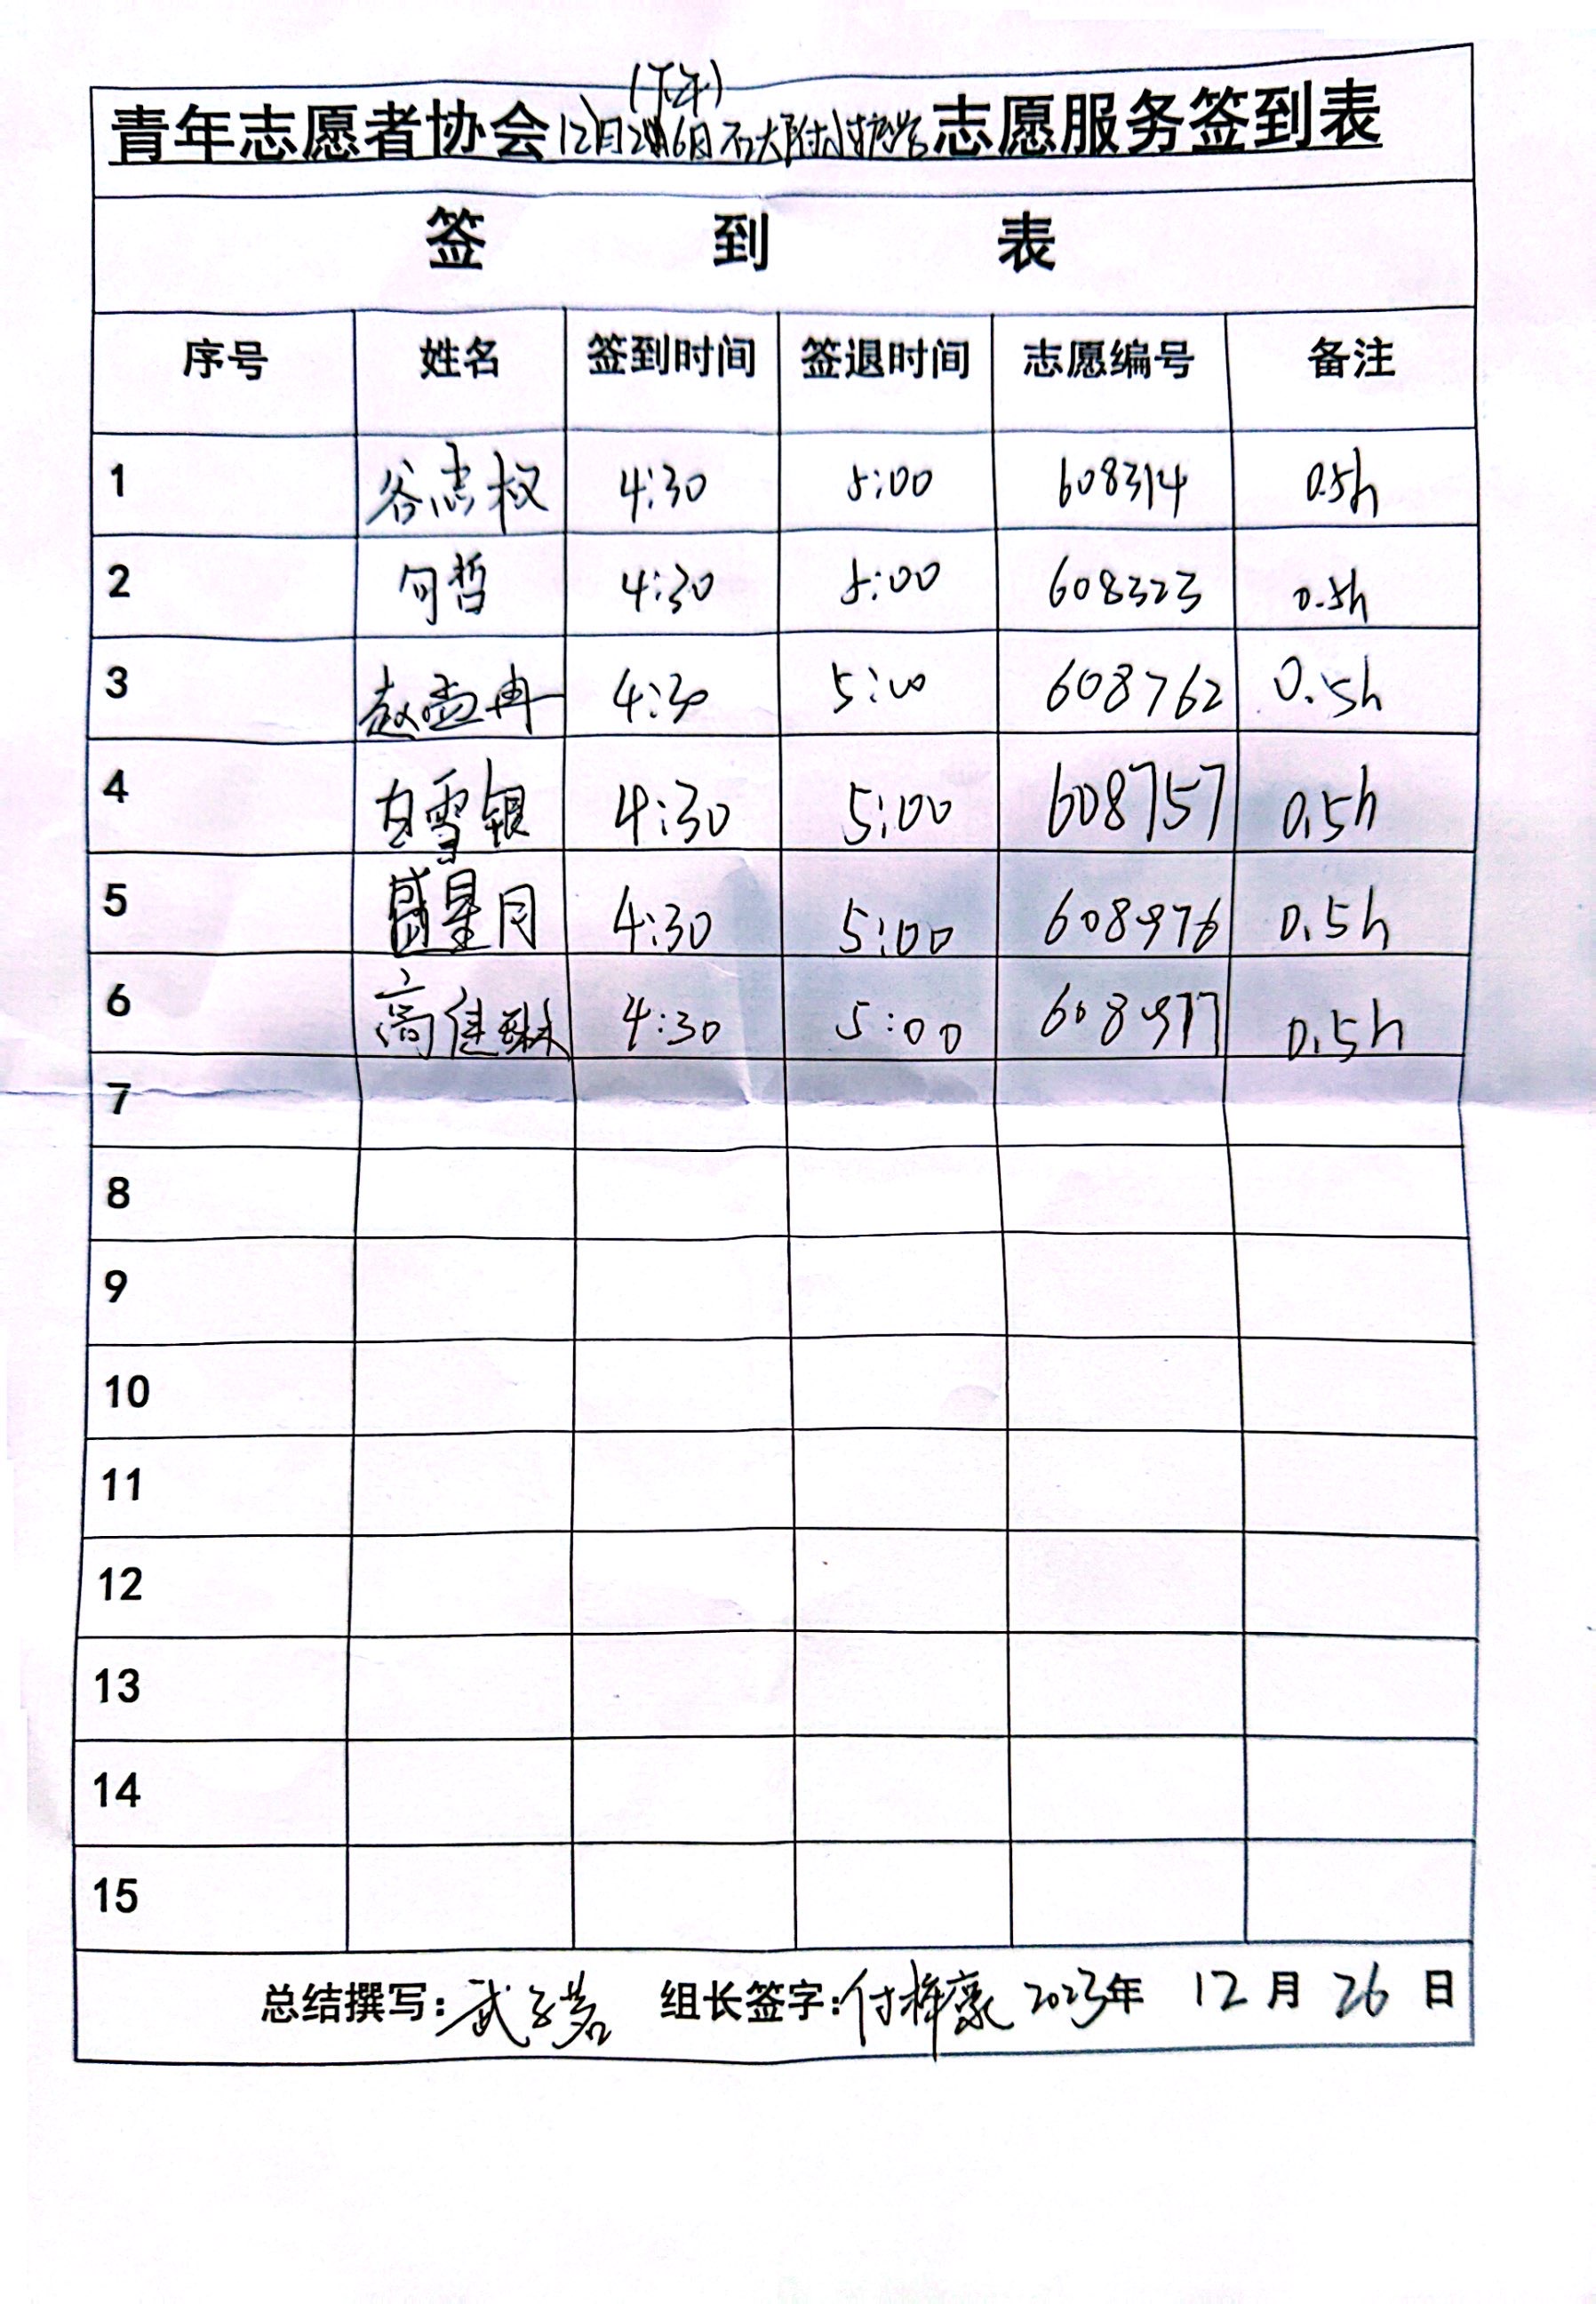 (下午)
青年志愿者协会12月26日石大附小护学志愿服务签到表
签 到 表
序号 姓名 签到时间 签退时间 志愿编号 备注
1 谷志权 4:30 5:00 608314 0.5h
2 句哲 4:30 5:00 608323 0.5h
3 赵孟冉 4:30 5:00 608762 0.5h
4 白雪银 4:30 5:00 608757 0.5h
5 盛星月 4:30 5:00 608976 0.5h
6 高佳琳 4:30 5:00 608977 0.5h
7
8
9
10
11
12
13
14
15
总结撰写:武子茗 组长签字:付梓豪 2023年 12月 26日